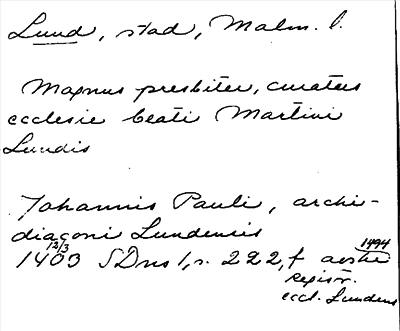 Lund, stad, Malm. l.
Magnus presbiter, curatus
ecclesie beati Martini
Lundis
Johannis Pauli, archi-
diagoni Lundensis
12/3 1494
1403 SDns 1, s. 222, f
Registr.
eccl. Lundens